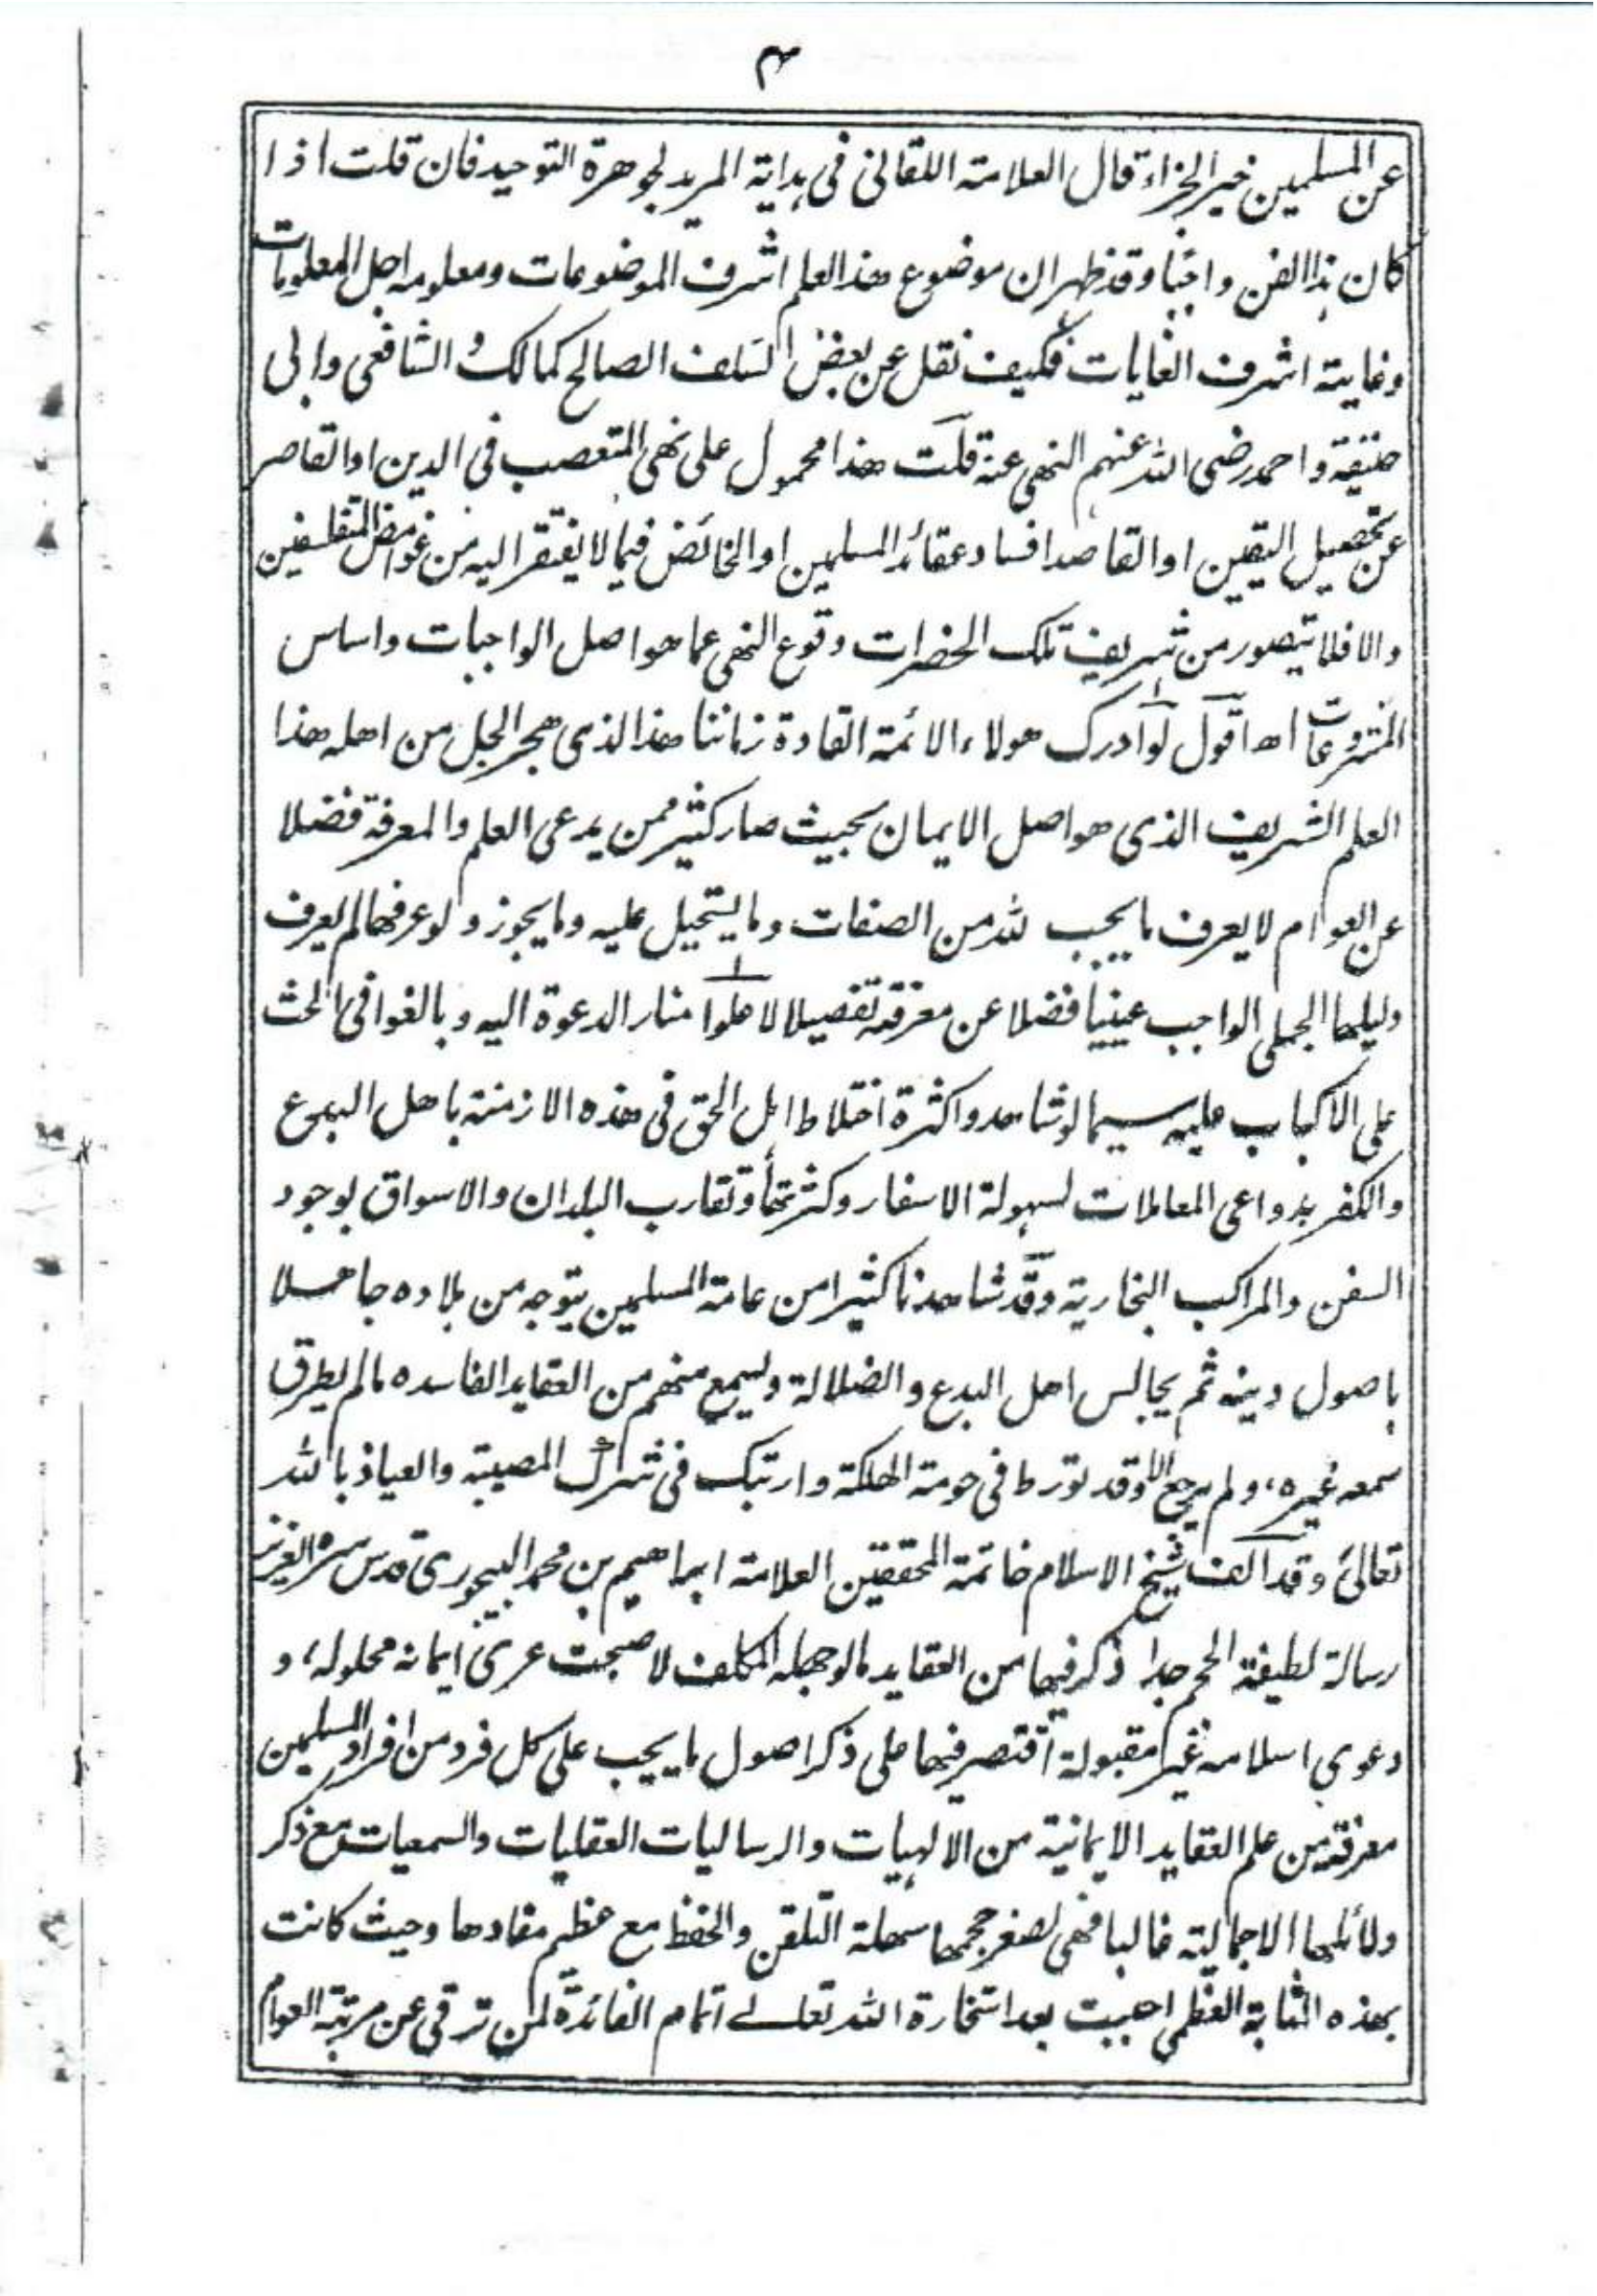 ۳
عن المسلمين خير الجزاء قال العلامة اللقاني في هداية المريد لجوهرة التوحيد فان قلت اذا
كان هذا الفن واجبا وقد ظهر ان موضوع هذا العلم اشرف الموضوعات ومعلومه اجل المعلومات
وغايته اشرف الغايات فكيف نقل عن بعض السلف الصالح كمالك والشافعي وابي
حنيفة واحمد رضي الله عنهم النهي عنه قلت هذا محمول على نهي المتعصب في الدين او القاصر
عن تحصيل اليقين او القاصد افساد عقائد المسلمين او الخائض فيما لا يفتقر اليه من غوامض المتفلسفين
والا فلا يتصور من شريف تلك الحضرات وقوع النهي عما هو اصل الواجبات واساس
المشروعات اه اقول لو ادرك هولاء الائمة القادة زماننا هذا الذي هجر الجل من اهله هذا
العلم الشريف الذي هو اصل الايمان بحيث صار كثير ممن يدعى العلم والمعرفة فضلا
عن العوام لا يعرف ما يجب لله من الصفات وما يستحيل عليه وما يجوز ولو عرفها لم يعرف
دليلها الجملي الواجب عينيا فضلا عن معرفته تفصيلا لاعلوا منار الدعوة اليه وبالغوا في الحث
على الاكباب عليه سيما لو شاهدوا كثرة اختلاط اهل الحق في هذه الازمنة باهل البدع
والكفر بدواعي المعاملات لسهولة الاسفار وكثرتها وتقارب البلدان والاسواق بوجود
السفن والمراكب البخارية وقد شاهدنا كثيرا من عامة المسلمين يتوجه من بلاده جاهلا
باصول دينه ثم يجالس اهل البدع والضلالة ويسمع منهم من العقايد الفاسده مالم يطرق
سمعه غيره، ولم يرجع الا وقد تورط في حومة الهلكة وارتبك في شرك المصيبة والعياذ بالله
تعالى وقد الف شيخ الاسلام خاتمة المحققين العلامة ابراهيم بن محمد البيجوري قدس سره العزيز
رسالة لطيفة الحجم جدا ذكر فيها من العقايد مالو جهله المكلف لاصبحت عرى ايمانه محلولة، و
دعوى اسلامه غير مقبولة اقتصر فيها على ذكر اصول ما يجب على كل فرد من افراد المسلمين
معرفته من علم العقايد الايمانية من الالهيات والرساليات العقليات والسمعيات مع ذكر
دلائلها الاجمالية غالبا فهي لصغر حجمها سهلة التلقن والحفظ مع عظيم مفادها وحيث كانت
بهذه المثابة العظمى احببت بعد استخارة الله تعالى اتمام الفائدة لمن ترقى عن مرتبة العوام